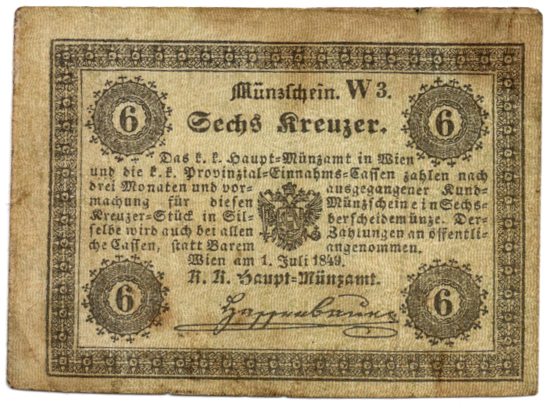 Münzschein. W 3.
6 Sechs Kreuzer. 6
Das k. k. Haupt=Münzamt in Wien
und die k. k. Provinzial=Einnahms=Cassen zahlen nach
drei Monaten und vor- ausgegangener Kund-
machung für diesen Münzschein ein Sechs-
Kreuzer=Stück in Sil- berscheidemünze. Der-
selbe wird auch bei allen Zahlungen an öffentli-
che Cassen, statt Barem angenommen.
Wien am 1. Juli 1849.
K. K. Haupt=Münzamt.
6 6